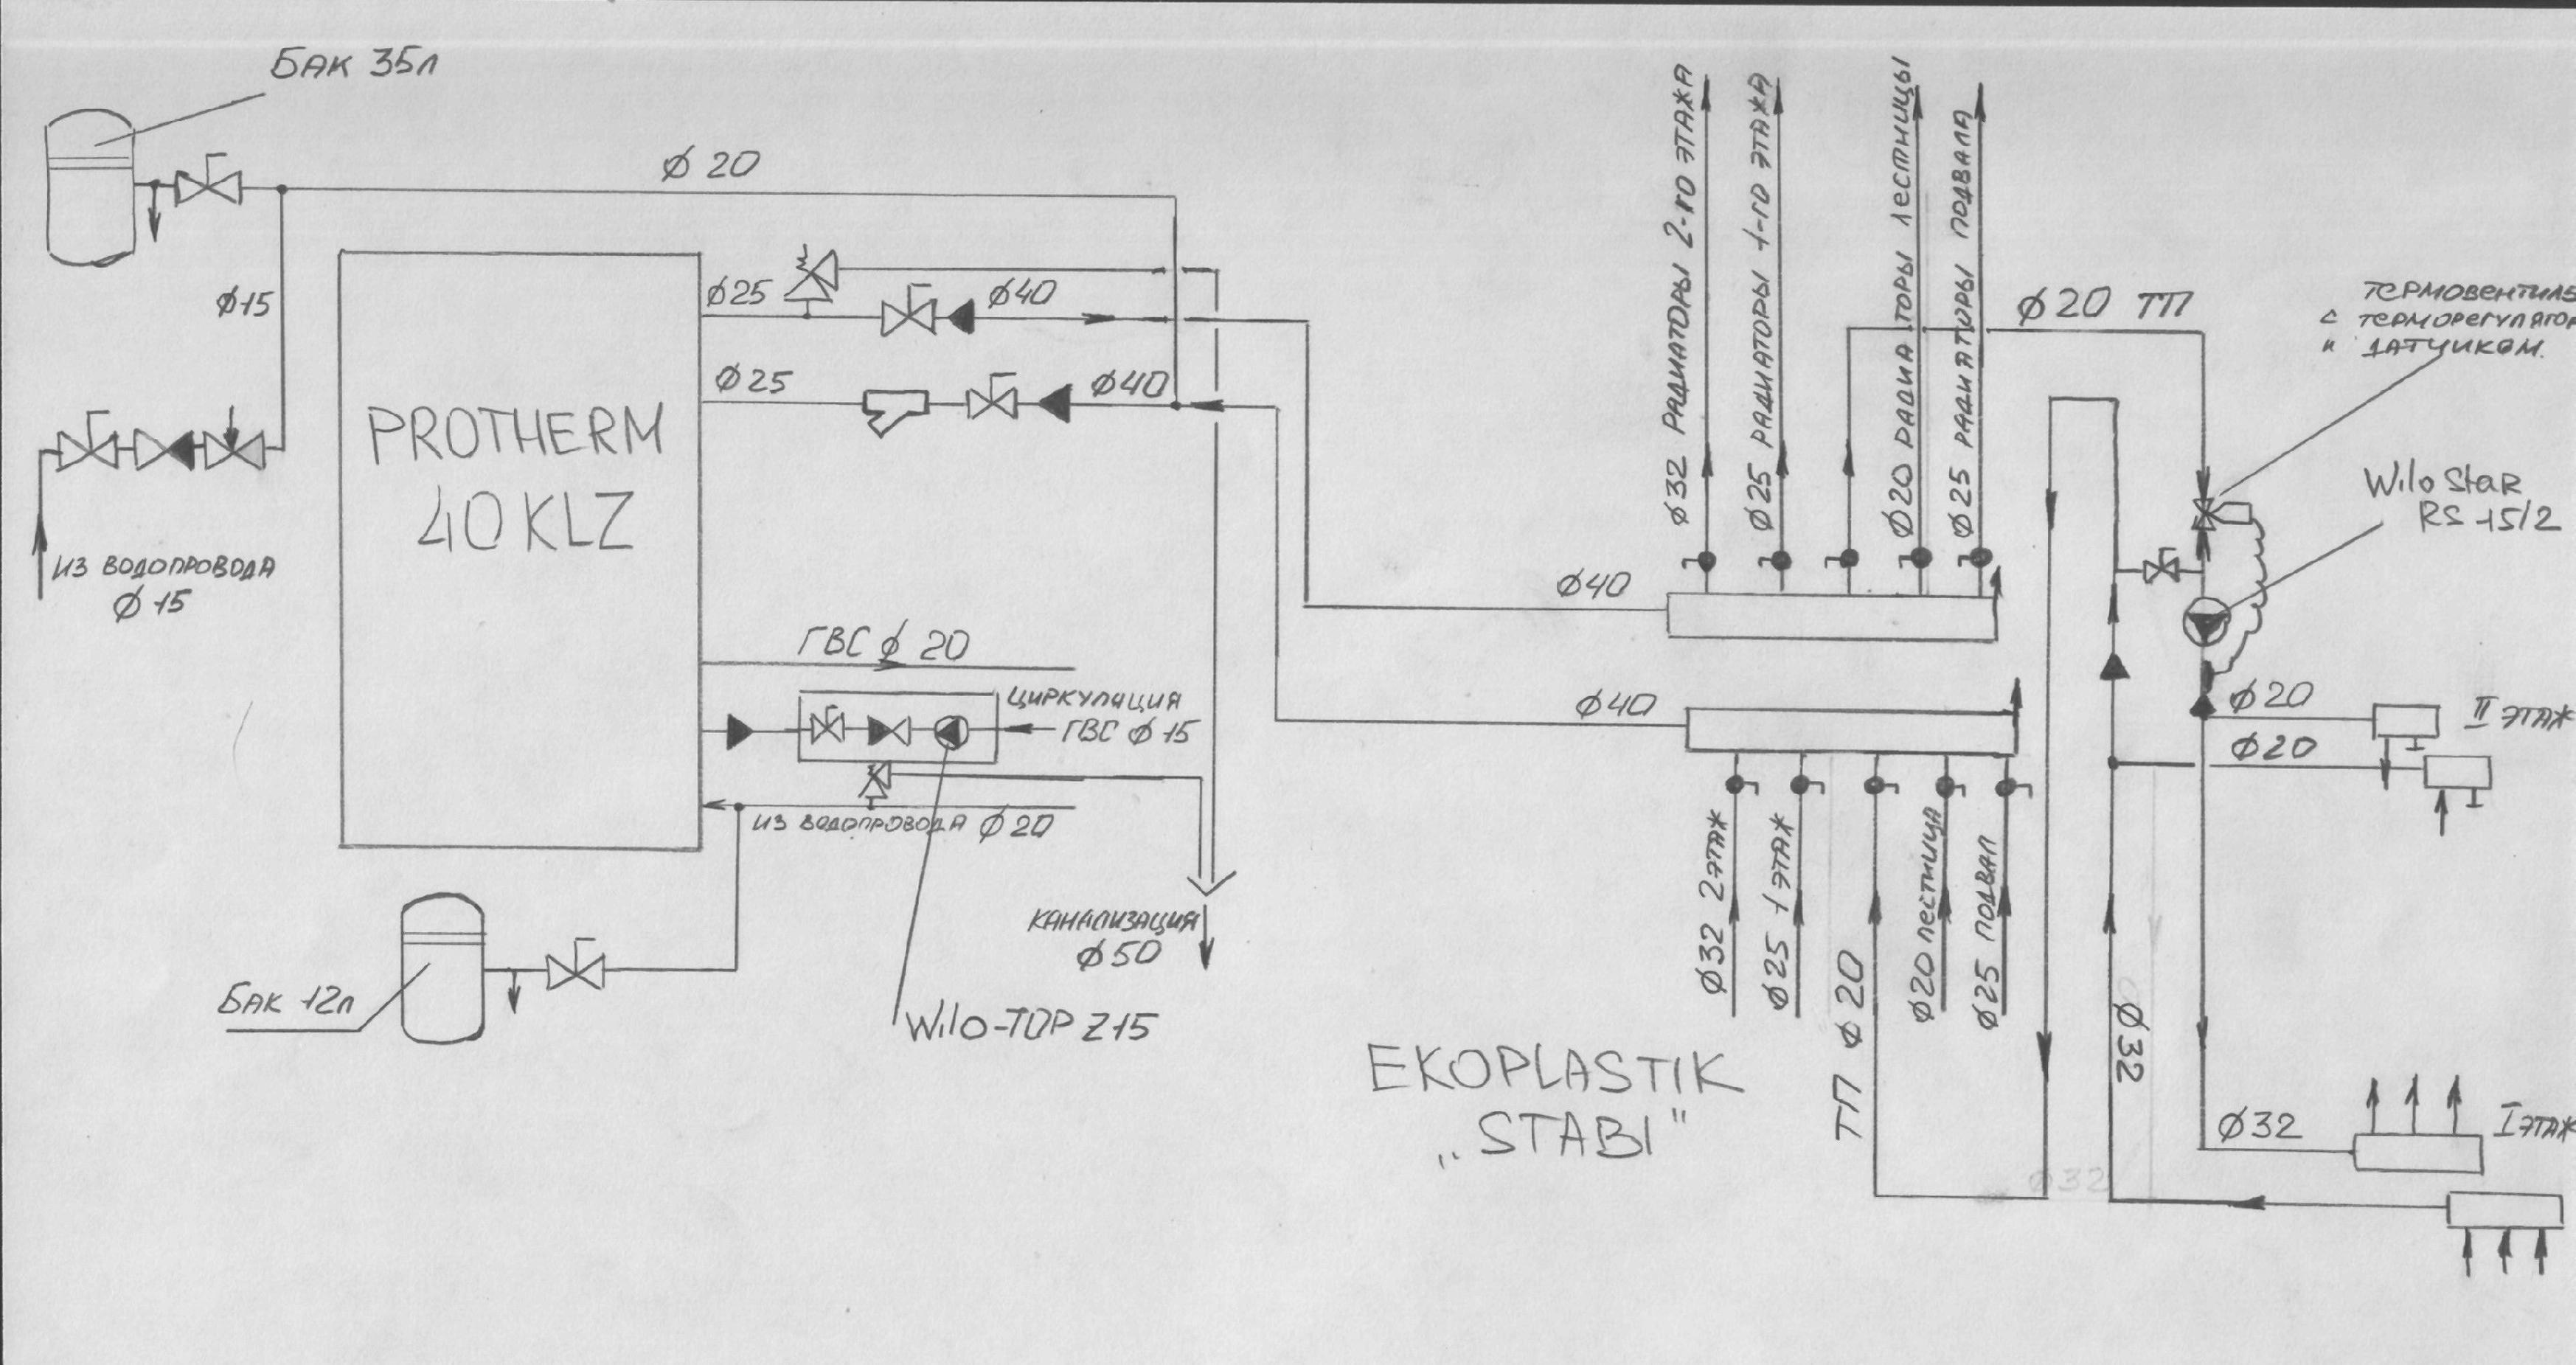 БАК 35л
Ø 20
Ø15
ИЗ ВОДОПРОВОДА
Ø 15
PROTHERM
40 KLZ
Ø25
Ø40
Ø25
Ø40
ГВС Ø 20
ЦИРКУЛЯЦИЯ
ГВС Ø 15
ИЗ ВОДОПРОВОДА Ø 20
БАК 12л
КАНАЛИЗАЦИЯ
Ø50
Wilo-TOP Z15
Ø32 РАДИАТОРЫ 2-го ЭТАЖА
Ø25 РАДИАТОРЫ 1-го ЭТАЖА
Ø20 РАДИАТОРЫ ЛЕСТНИЦЫ
Ø25 РАДИАТОРЫ ПОДВАЛА
Ø40
Ø40
Ø32 2ЭТАЖ
Ø25 1ЭТАЖ
ТП Ø 20
Ø20 ЛЕСТНИЦА
Ø25 ПОДВАЛ
EKOPLASTIK
„STABI"
Ø20 ТП
ТЕРМОВЕНТИЛЬ
С ТЕРМОРЕГУЛЯТОР
И ДАТЧИКОМ.
Wilo StaR
RS 15/2
Ø20
II ЭТАЖ
Ø20
Ø32
Ø32
I ЭТАЖ
Ø32